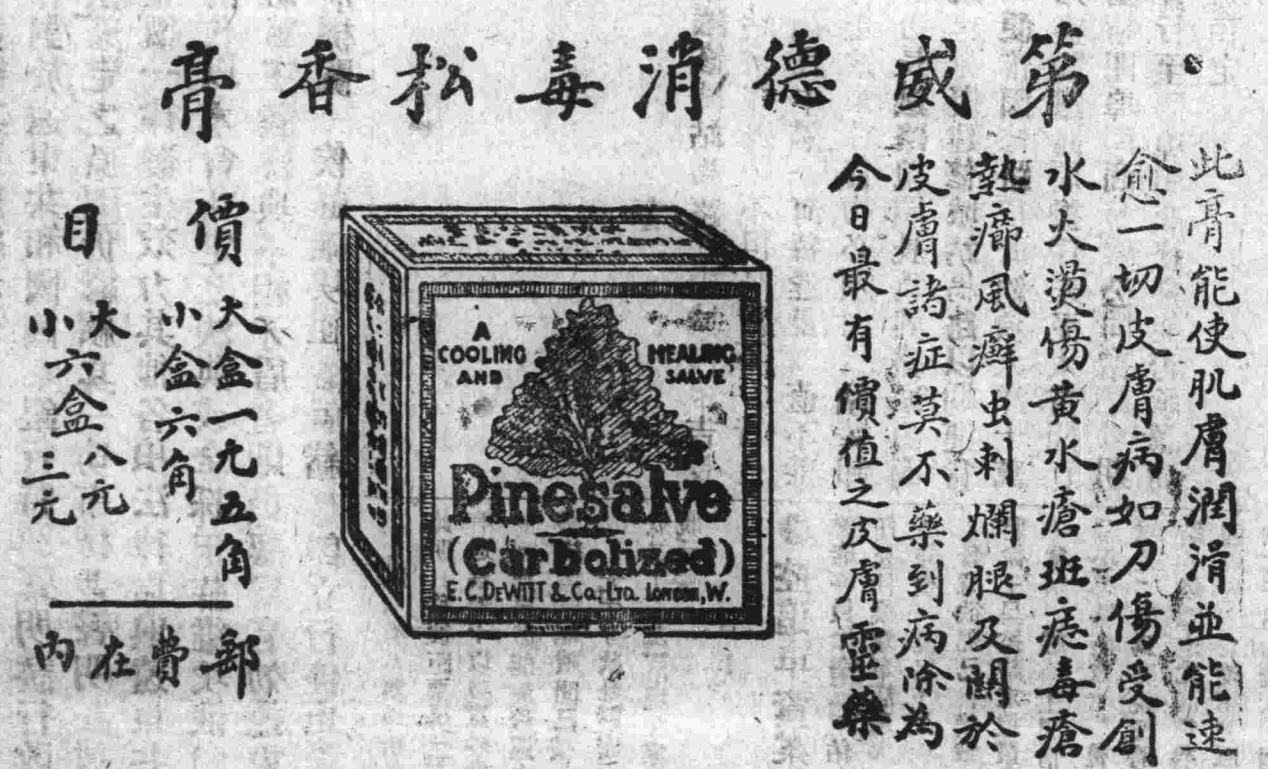 第威德消毒松香膏
此膏能使肌膚潤滑並能速
愈一切皮膚病如刀傷受創
水火燙傷黃水瘡斑痣毒瘡
熱癤風癬虫刺爛腿及關於
皮膚諸症莫不藥到病除為
今日最有價值之皮膚靈藥
A
COOLING
AND
HEALING
SALVE
Pinesalve
(Carbolized)
E.C. DEWITT & Co. LTD. LONDON, W.
價目
大盒一元五角
小盒六角
大六盒八元
小六盒三元
郵費在內